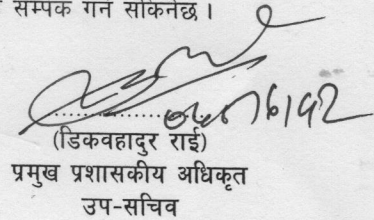 सम्पर्क गर्न सकिनेछ ।
(डिकवहादुर राई)
प्रमुख प्रशासकीय अधिकृत
उप-सचिव